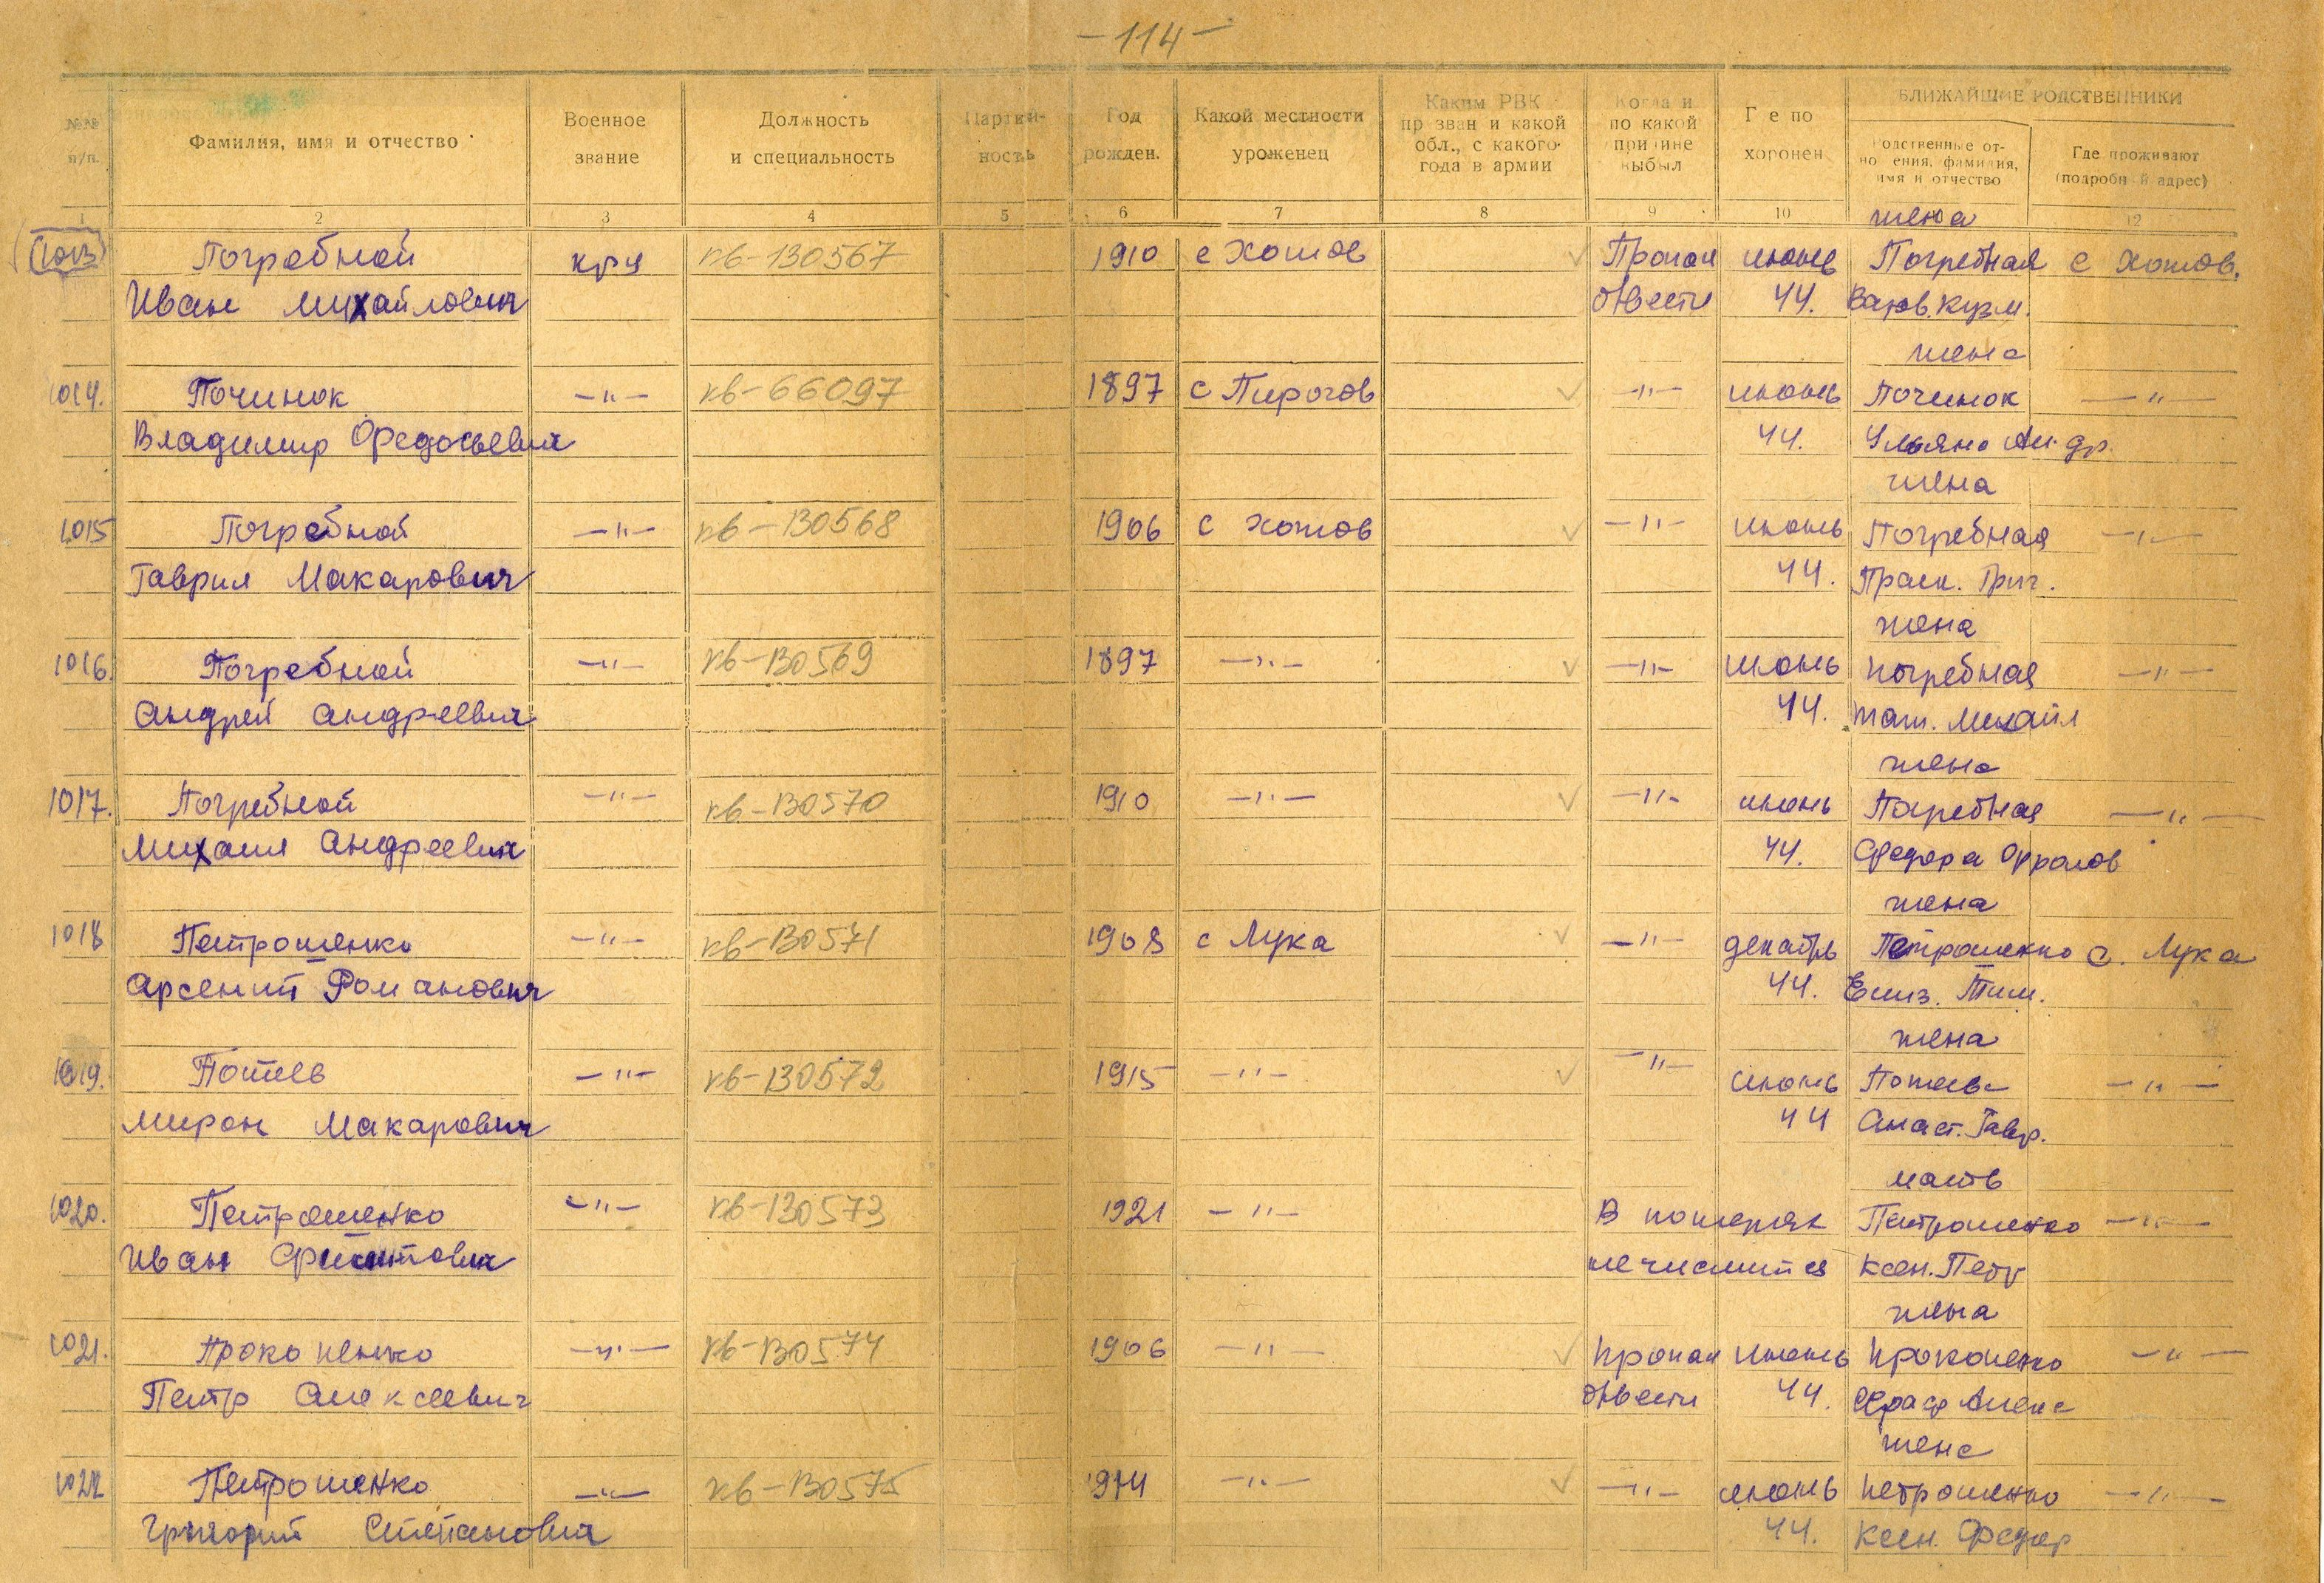 -114-
БЛИЖАЙШИЕ РОДСТВЕННИКИ
№№ п/п.
Фамилия, имя и отчество
Военное звание
Должность и специальность
Партий-ность
Год рожден.
Какой местности уроженец
Каким РВК призван и какой обл., с какого года в армии
Когда и по какой причине выбыл
Где по хоронен
Родственные от-но ения, фамилия, имя и отчество
Где проживают (подробный адрес)
1 2 3 4 5 6 7 8 9 10 12
жена
1013 Погребной кр-ц кв-130567 1910 с Хотов Пропал июнь Погребная с Хотов.
Иван Михайлович б/вести 44. Варв. Кузм.
жена
1014. Починок -"- кв-66097 1897 с Пирогов -"- июнь Починок -"-
Владимир Федосьевич 44. Ульяна Андр.
жена
1015 Погребной -"- кв-130568 1906 с Хотов -"- июнь Погребная -"-
Гаврил Макарович 44. Праск. Григ.
жена
1016. Погребной -"- кв-130569 1897 -"- -"- июнь Погребная -"-
Андрей Андреевич 44. Тат. Михайл
жена
1017. Погребной -"- кв-130570 1910 -"- -"- июнь Погребная -"-
Михаил Андреевич 44. Федора Фролов
жена
1018 Петрошенко -"- кв-130571 1908 с Лука -"- декабрь Петрошенко с. Лука
Арсентий Романович 44. Елиз. Тим.
жена
1019. Потиев -"- кв-130572 1915 -"- -"- июнь -"-
Мирон Макарович 44 Анаст. Гавр.
мать
1020. Петрошенко -"- кв-130573 1921 -"- В потерях Петрошенко -"-
Иван не числится Ксен. Петр
жена
1021. Прокопенко -"- кв-130574 1906 -"- Пропал июнь Прокопенко -"-
Петр Алексеевич б/вести 44. Алекс
жена
1022 Петрошенко -"- кв-130575 1914 -"- -"- июнь Петрошенко -"-
Григорий Степанович 44. Ксен. Федор